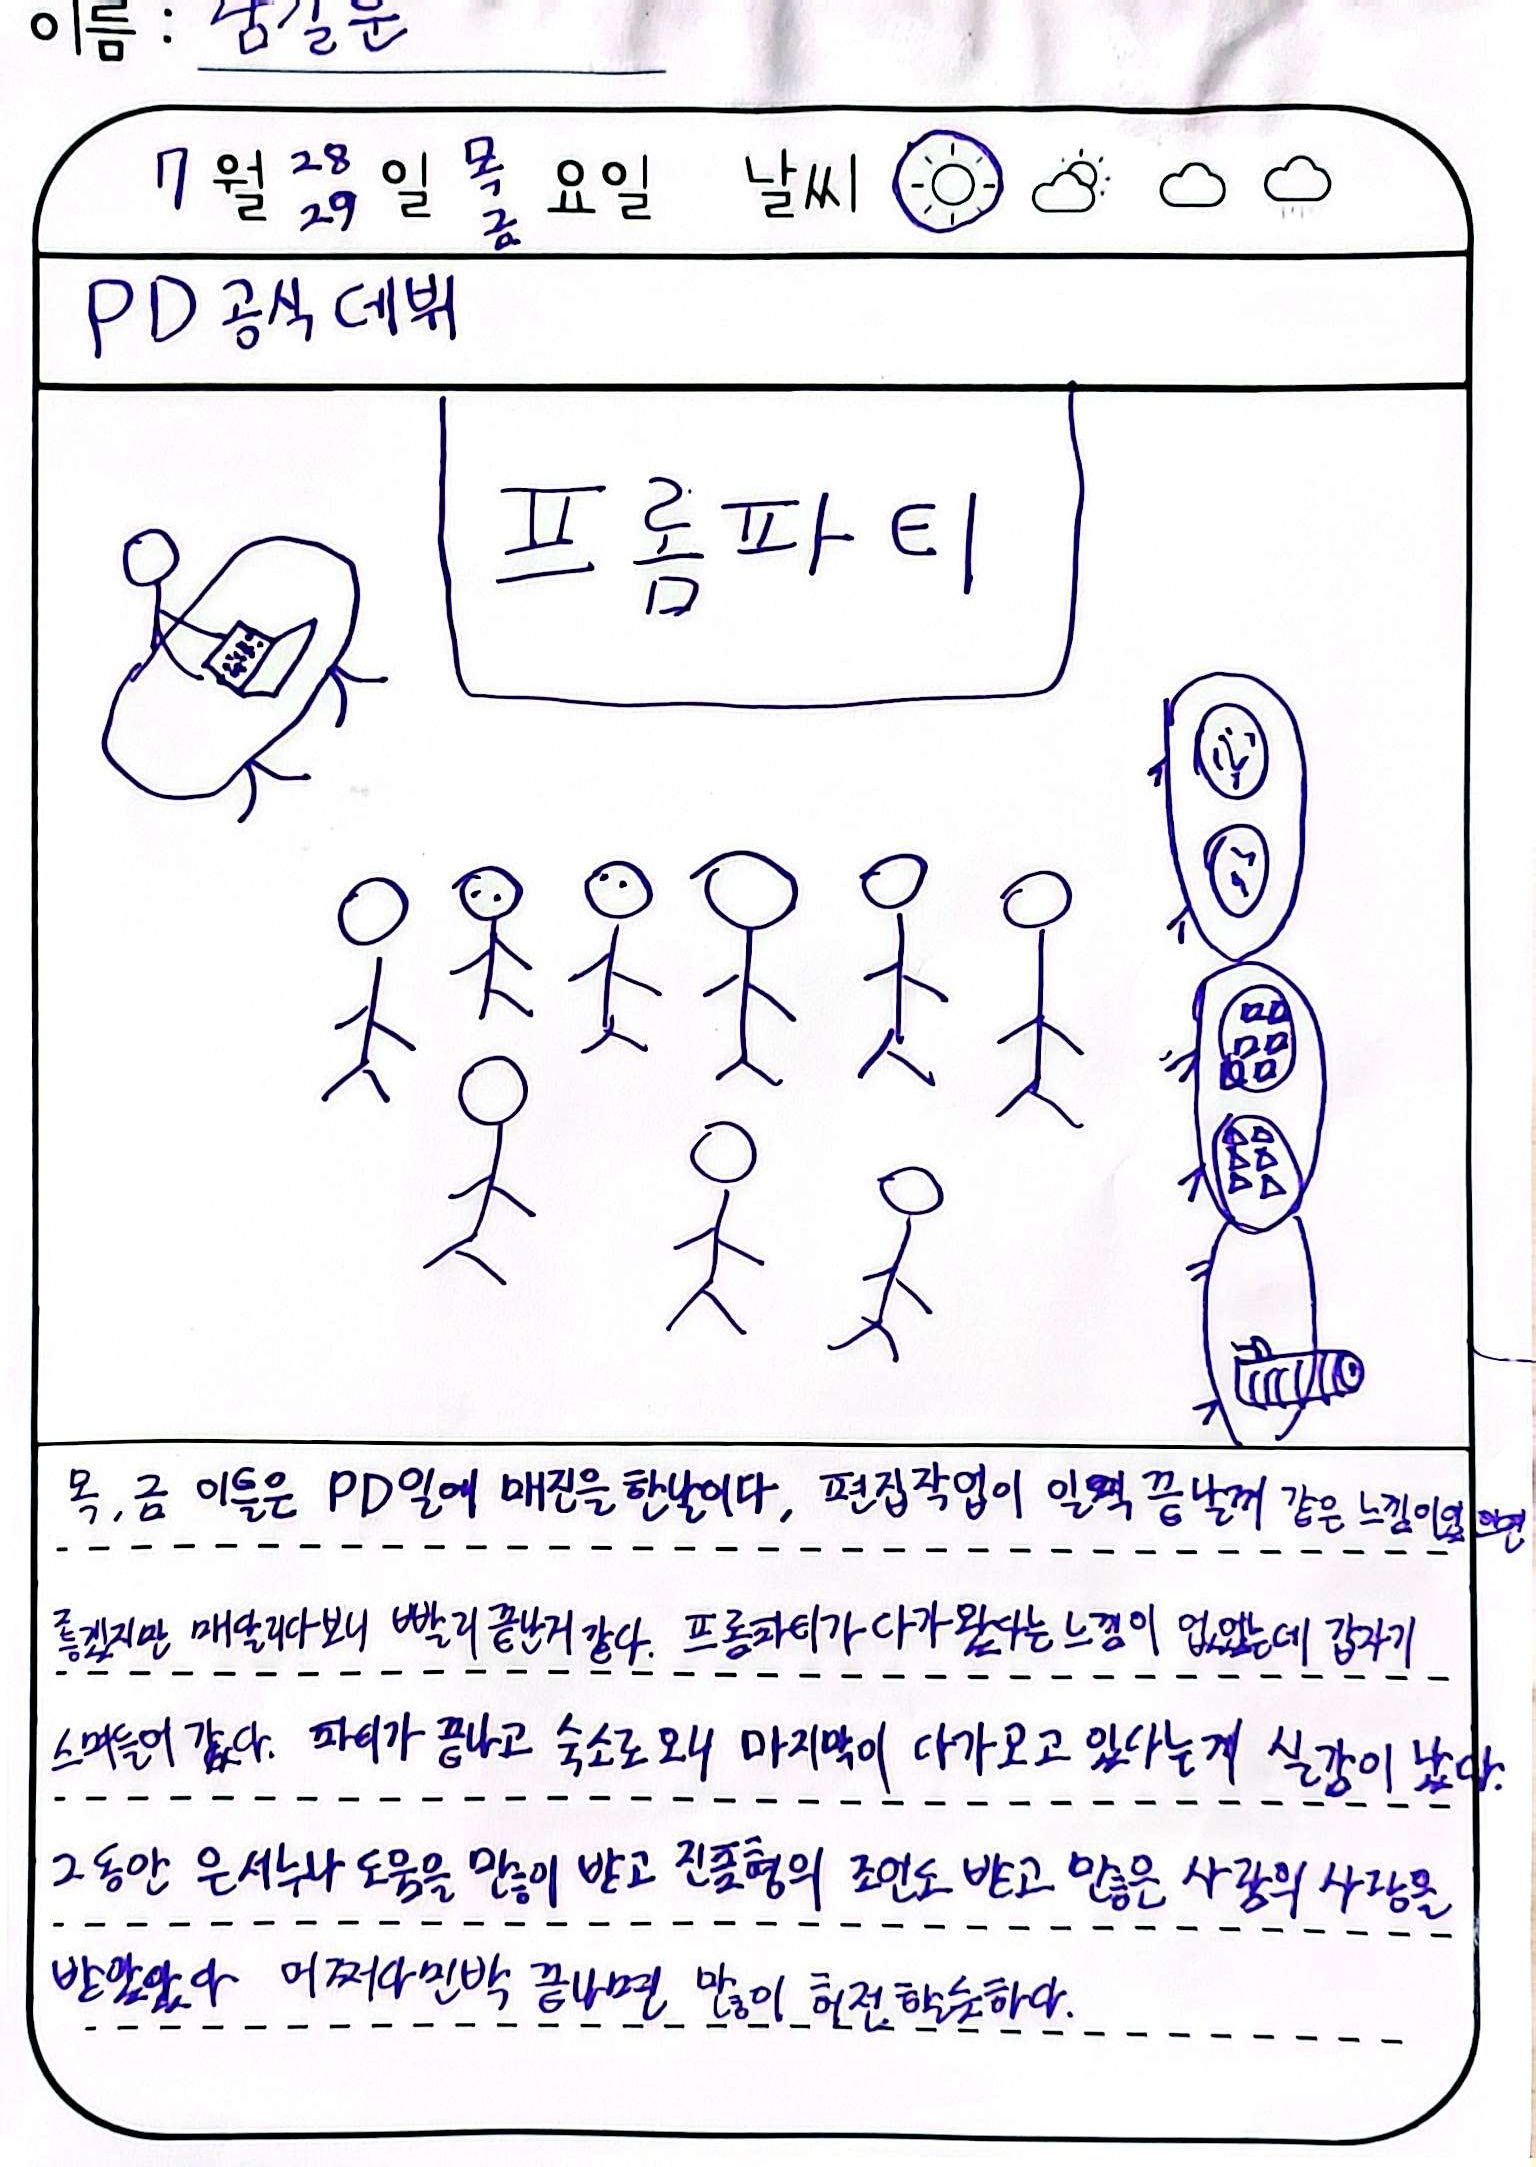 이름 :
7월 28 29 일 목 금 요일 날씨
PD 공식 데뷔
프롬파티
목, 금 이틀은 PD일에 매진을 한날이다, 편집작업이 일찍 끝날꺼 같은 느낌이였으면
좋겠지만 매달리다보니 빨리 끝난거 같다. 프롬파티가 다가왔다는 느낌이 없었는데 갑자기
스며들어 갔다. 파티가 끝나고 숙소로 오니 마지막이 다가오고 있다는게 실감이 났다.
그동안 은서누나 도움을 많이 받고 형의 조언도 받고 많은 사람의 사랑을
받았었다 어쩌다민박 끝나면 많이 허전할듯하다.